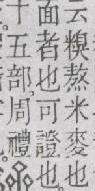 云糗熬米麥也
面者也可證也
十五部周禮